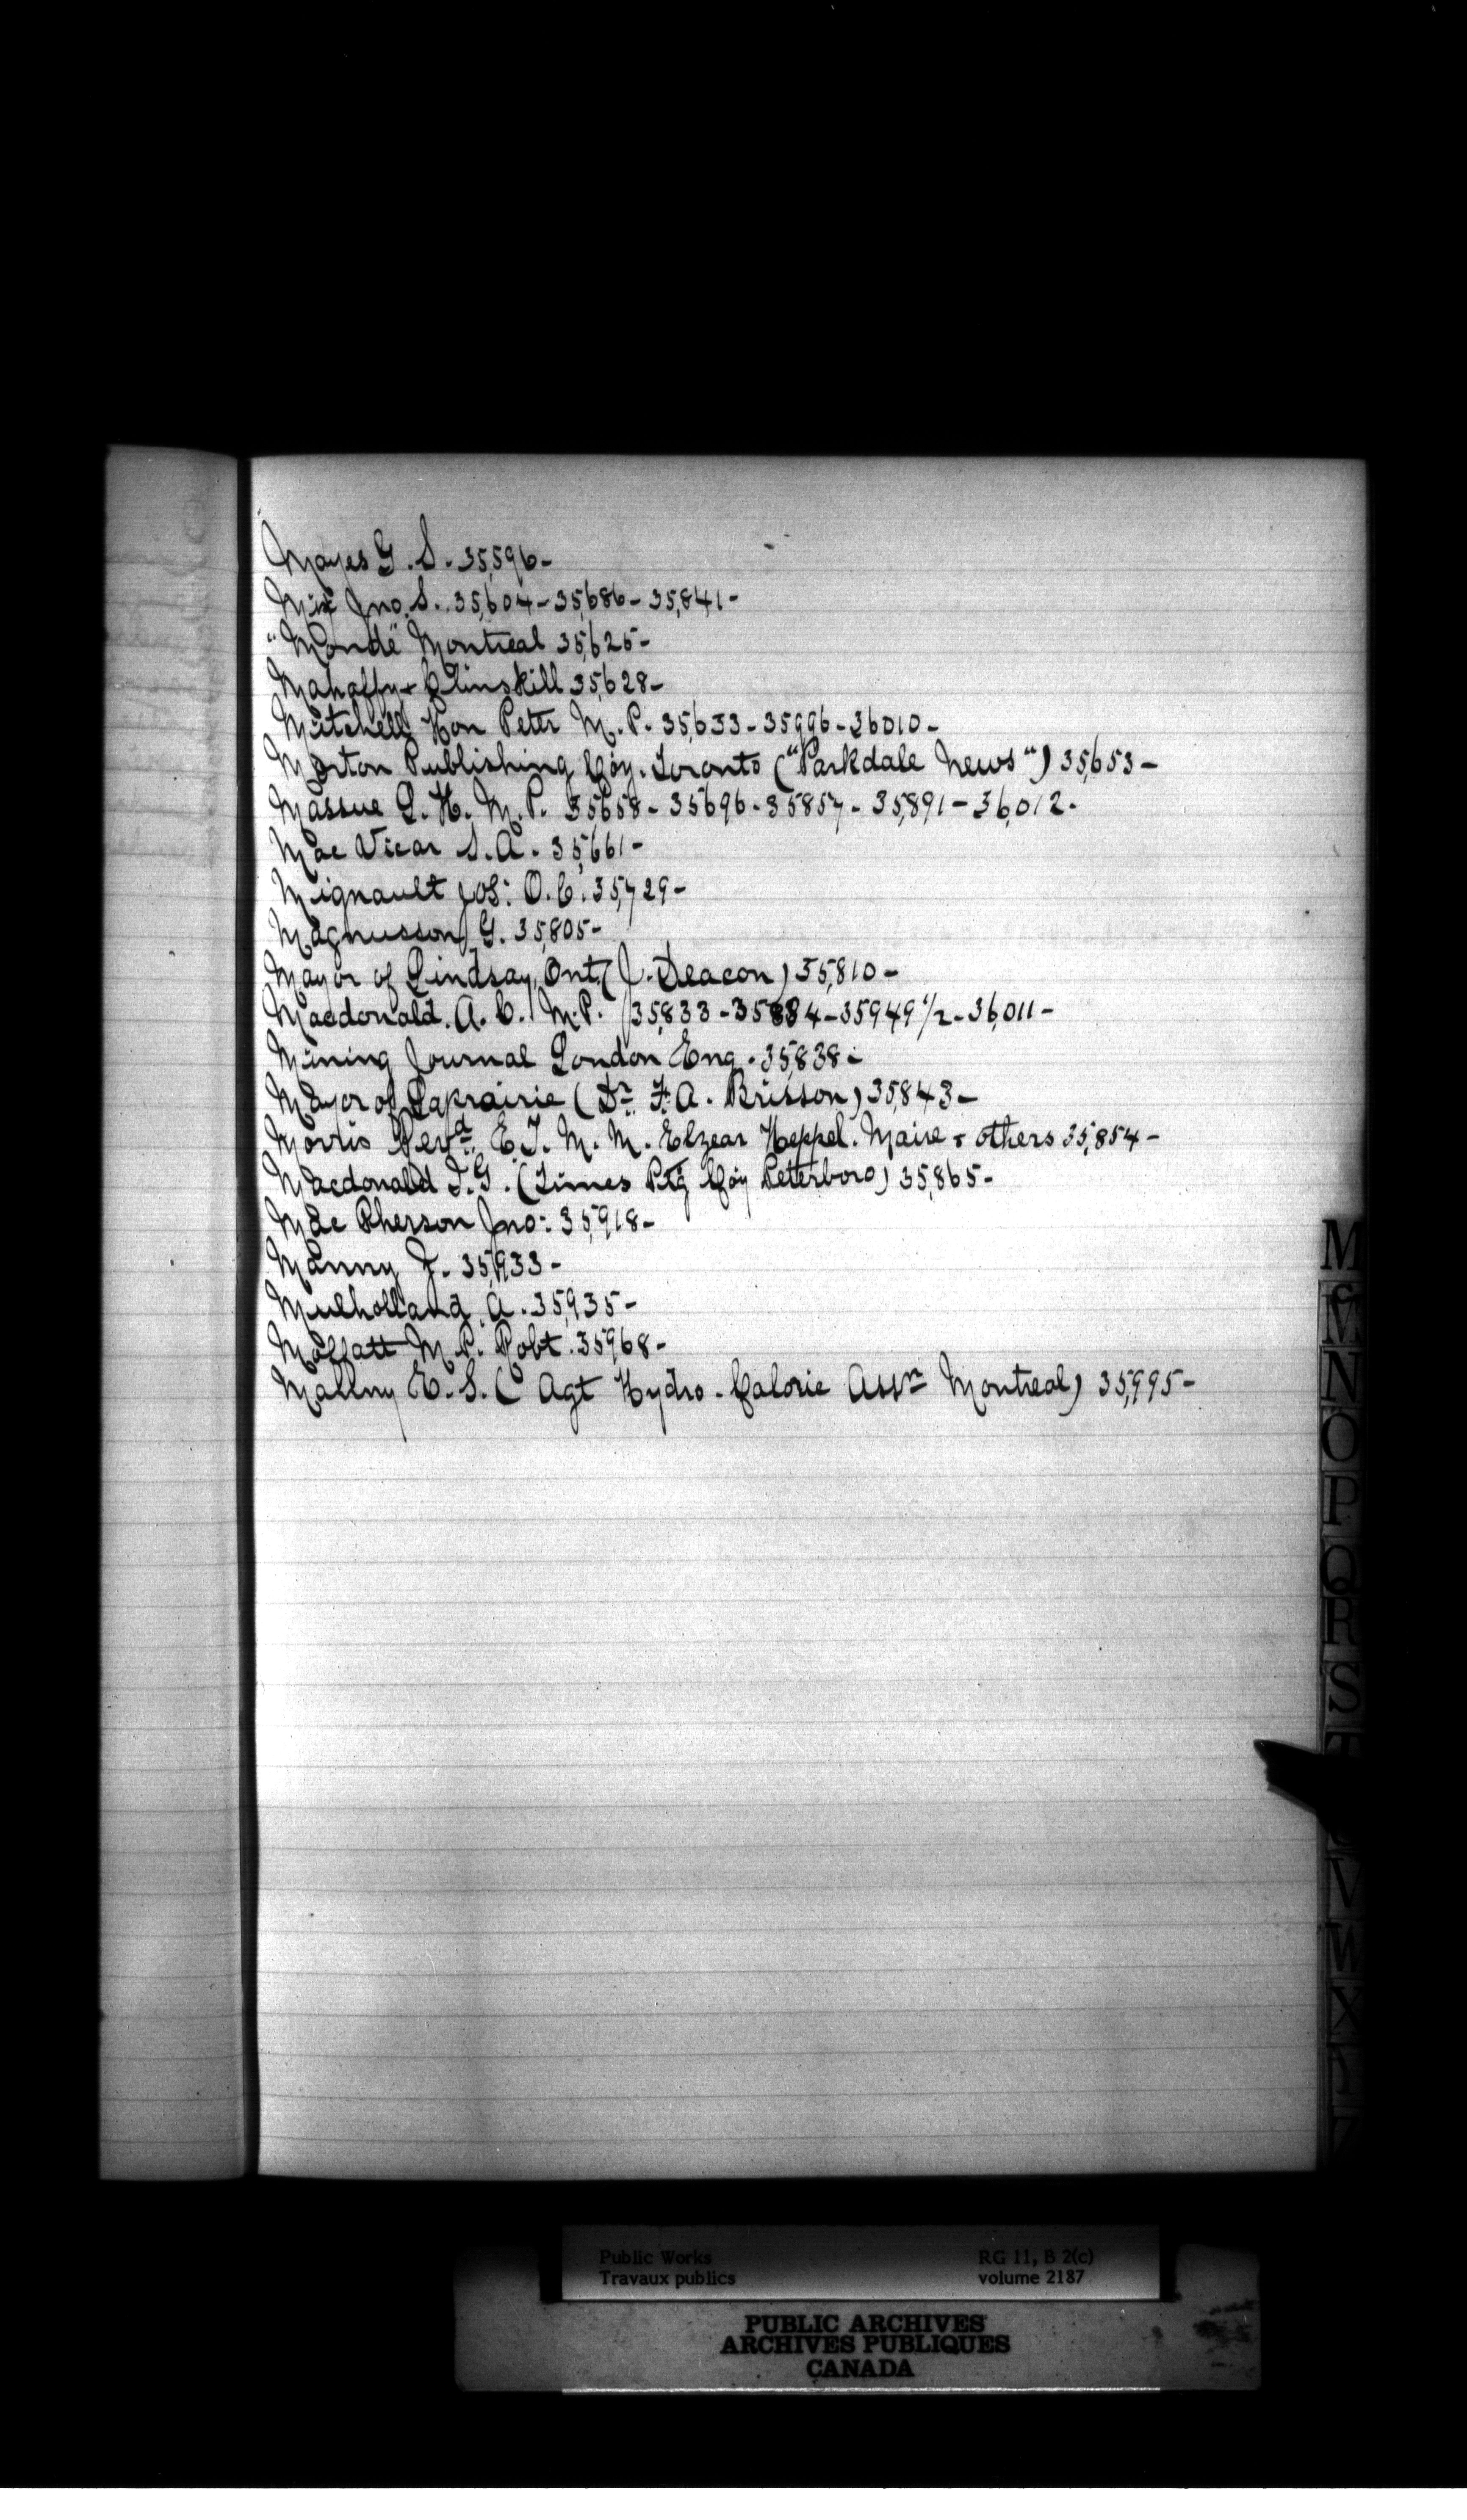 Mayes G. S. 35,596-
Mix Jno. S. 35,604-35,686-35,841-
"Monde" Montreal 35,625-
Mahaffy & Clinskill 35,628-
Mitchell Hon Peter M.P. 35,633-35996-36010-
Morton Publishing Coy. Toronto ("Parkdale News") 35,653-
Massue L. H. M.P. 35658-35696-35857-35,891-36,012-
Mac Vicar S. A. 35,661-
Mignault Jos: O. C. 35,729-
Magnusson G. 35,805-
Mayor of Lindsay, Ont. (J. Deacon) 35,810-
Macdonald. A. C. M.P. 35,833-35884-35949 1/2-36,011-
Mining Journal London Eng. 35,838-
Mayor of Laprairie (Dr. F. A. Brisson) 35,843-
Morris Revd. E. J. M. M. Elzear Heppel. Maire & others 35,854-
Macdonald J. G. (Times Ptg Coy Peterboro) 35,865-
Mac Pherson Jno: 35,918-
Manny J. 35,933-
Mulholland A. 35,935-
Moffatt M.P. Robt. 35968-
E. S. (Agt Hydro-Caloric Assn Montreal) 35,995-
M
Mc
N
O
P
Q
R
S
T
V
W
X
Public Works RG 11, B 2(c)
Travaux publics volume 2187
PUBLIC ARCHIVES
ARCHIVES PUBLIQUES
CANADA